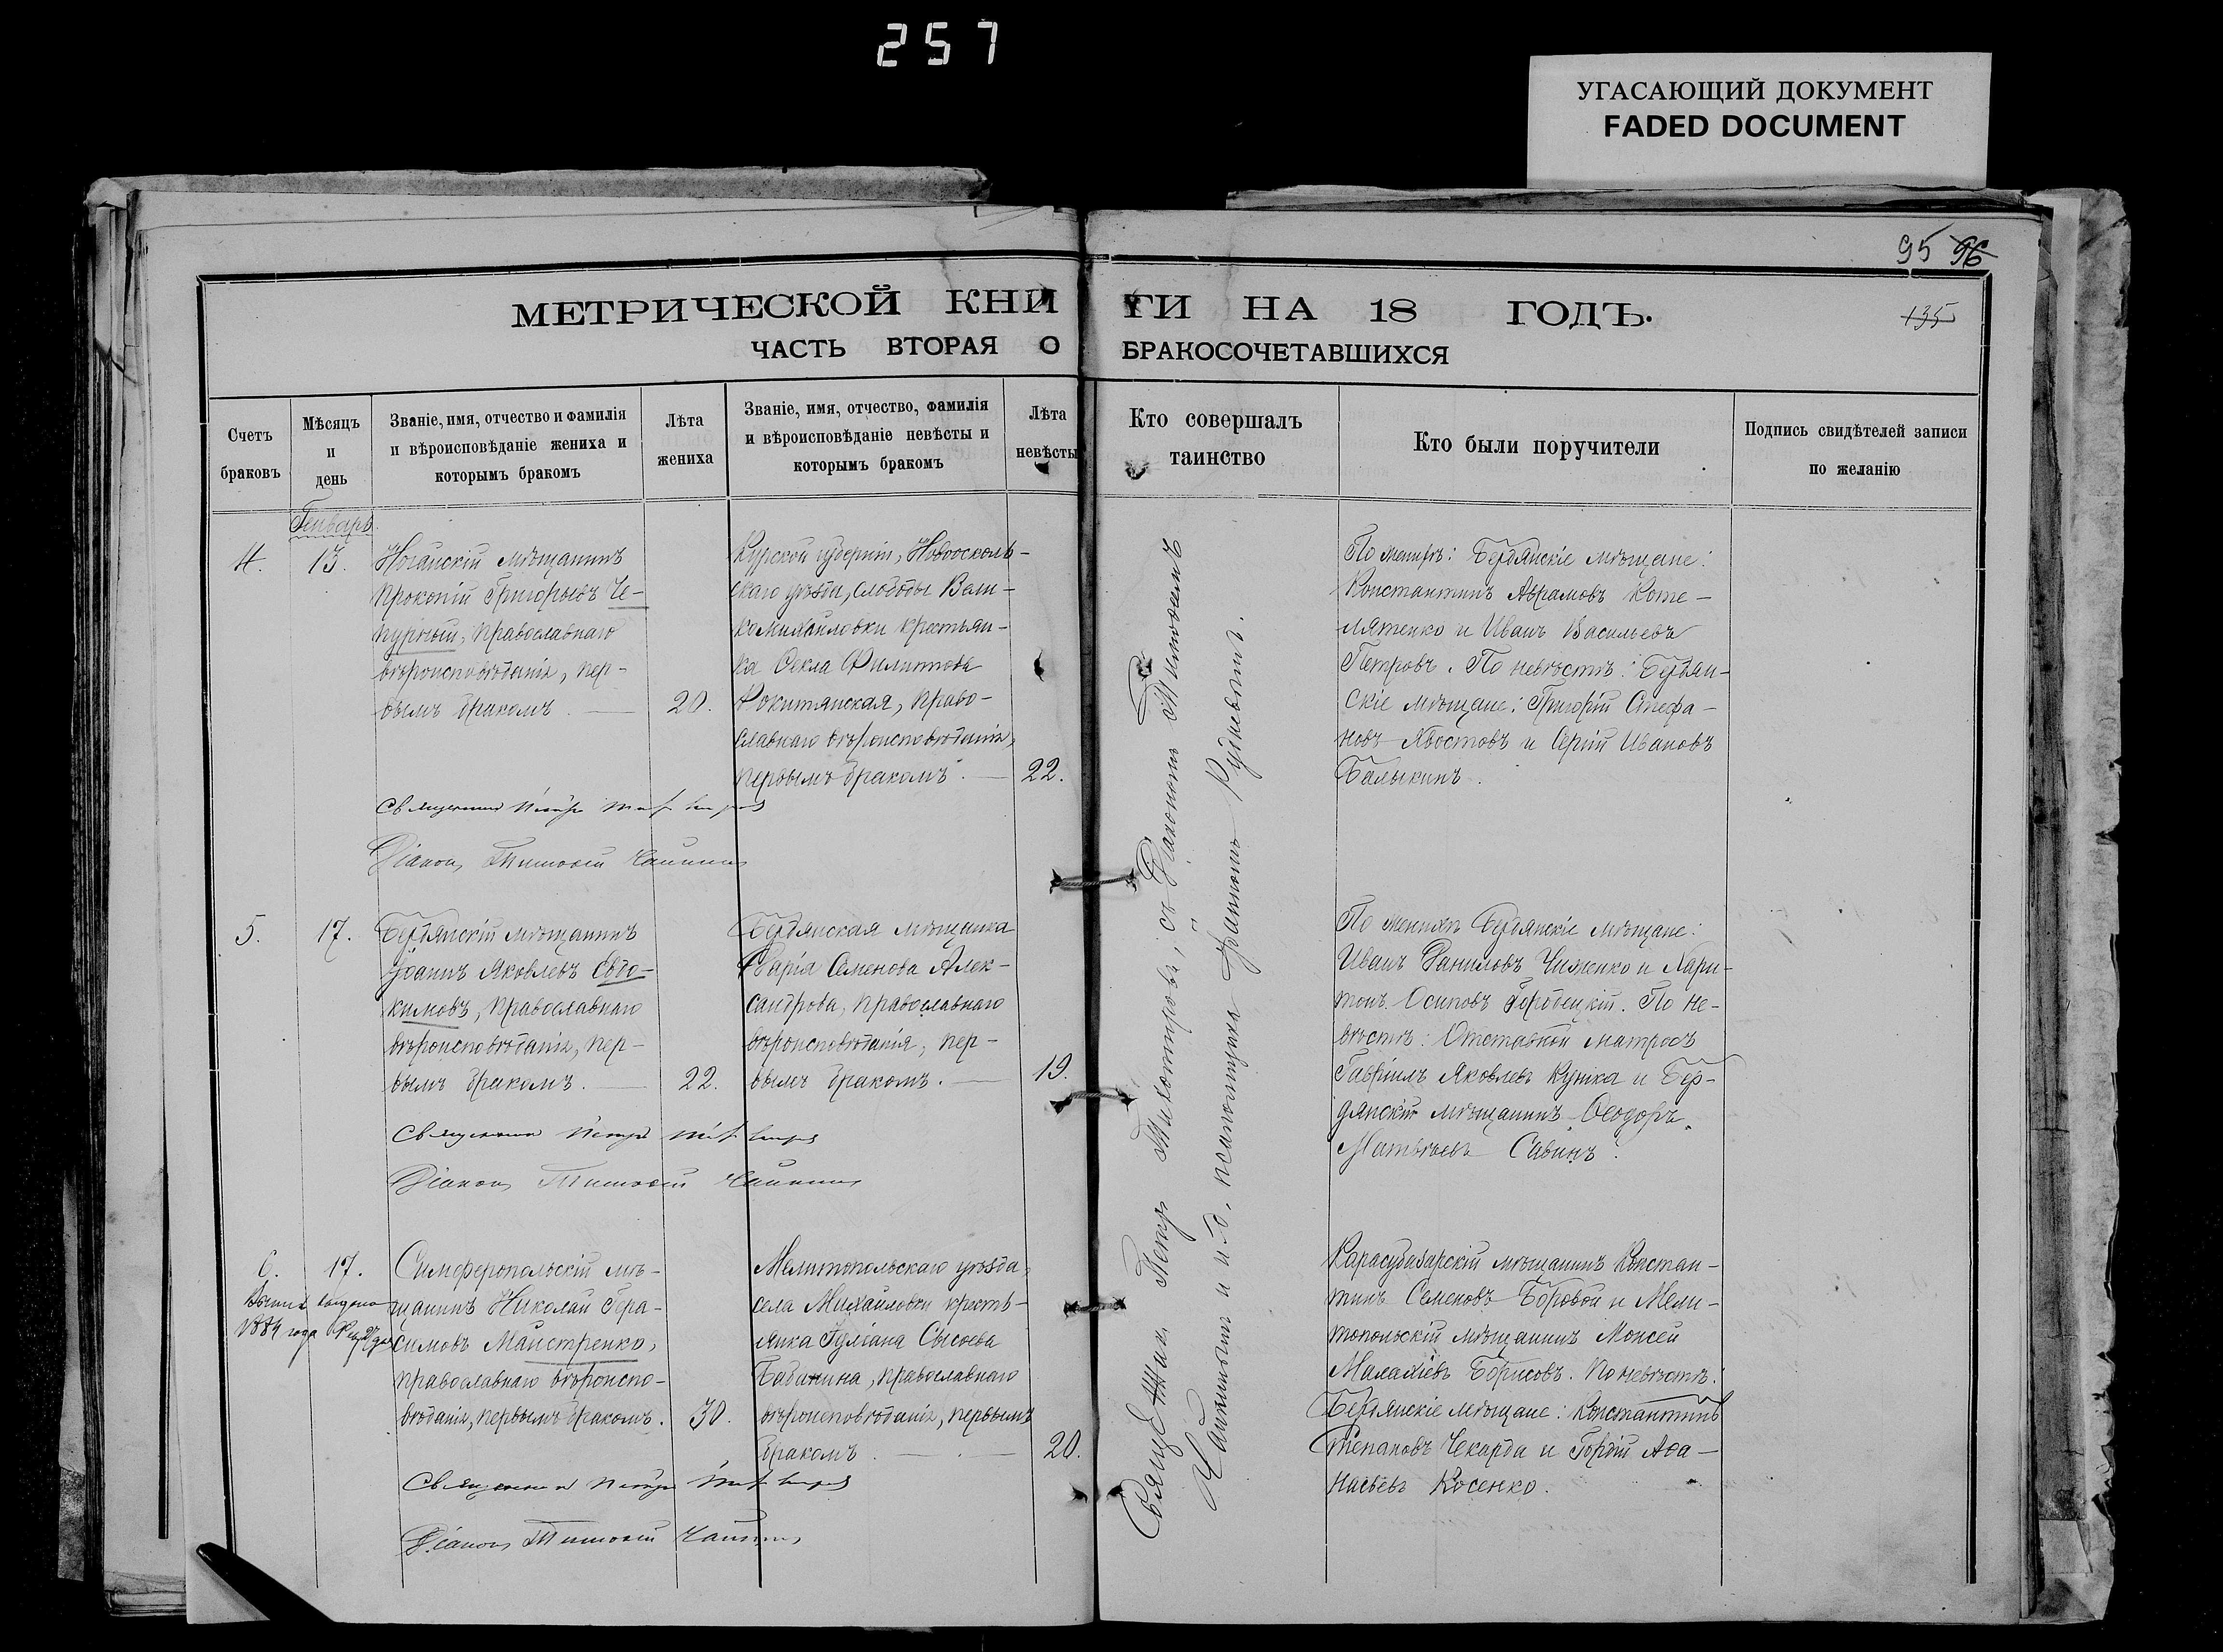 257
УГАСАЮЩИЙ ДОКУМЕНТ
FADED DOCUMENT
95 96
135
МЕТРИЧЕСКОЙ КНИ ГИ НА 18 ГОДЪ.
ЧАСТЬ ВТОРАЯ О БРАКОСОЧЕТАВШИХСЯ
Счетъ
браковъ
Мѣсяцъ
и
день
Званіе, имя, отчество и фамилія
и вѣроисповѣданіе жениха и
которымъ бракомъ
Лѣта
жениха
Званіе, имя, отчество, фамилія
и вѣроисповѣданіе невѣсты и
которымъ бракомъ
Лѣта
невѣсты
Кто совершалъ
таинство
Кто были поручители
Подпись свидѣтелей записи
по желанію
Генварь
4.
13.
Ногайскій мѣщанинъ
Прокопій Григорьевъ Че-
пурный, православнаго
вѣроисповѣданія, пер-
вымъ бракомъ.
20.
Курской губерніи, Новооскол-
скаго уѣзда, слободы Вели-
комихайловки крестьян-
ка Ѳекла Филиппова
Рокитянская, право-
славнаго вѣроисповѣданія,
первымъ бракомъ.
22.
Священникъ Петръ
Діаконъ Тимоѳей
По женихѣ: Бердянскіе мѣщане:
Константинъ Аврамовъ Коте-
лятенко и Иванъ Васильевъ
Петровъ. По невѣстѣ: Бердян-
скіе мѣщане: Григорій Стефа-
новъ Хвостовъ и Сергій Ивановъ
Балыкинъ.
5.
17.
Бердянскій мѣщанинъ
Іоаннъ Яковлевъ Евдо-
кимовъ, православнаго
вѣроисповѣданія, пер-
вымъ бракомъ.
22.
Бердянская мѣщанка
Дарія Семенова Алек-
сандрова, православнаго
вѣроисповѣданія, пер-
вымъ бракомъ.
19.
Священникъ Петръ
Діаконъ Тимоѳей
По женихѣ Бердянскіе мѣщане:
Иванъ Даниловъ Чиженко и Хари-
тонъ Осиповъ Городецкій. По не-
вѣстѣ: Отставной матросъ
Гавріилъ Яковлевъ Куника и Бер-
дянскій мѣщанинъ Ѳеодоръ
Матвѣевъ Савинъ.
6.
17.
1884 года
Симферопольскій мѣ-
щанинъ Николай Гера-
симовъ Майстренко,
православнаго вѣроиспо-
вѣданія, первымъ бракомъ.
30.
Мелитопольскаго уѣзда,
села Михайловки кресть-
янка Гуліана Сысоева
Бабанина, православнаго
вѣроисповѣданія, первымъ
бракомъ.
20.
Священникъ Петръ
Діаконъ Тимоѳей
Карасубазарскій мѣщанинъ Констан-
тинъ Семеновъ Боровой и Мели-
топольскій мѣщанинъ Моисей
Малахіевъ Борисовъ. По невѣстѣ:
Бердянскіе мѣщане: Константинъ
Степановъ Чекарда и Гордій Аѳа-
насьевъ Косенко.
Петръ съ Діакономъ Тимоѳеемъ
и и. д. псаломщика Іоанномъ Рудневымъ.